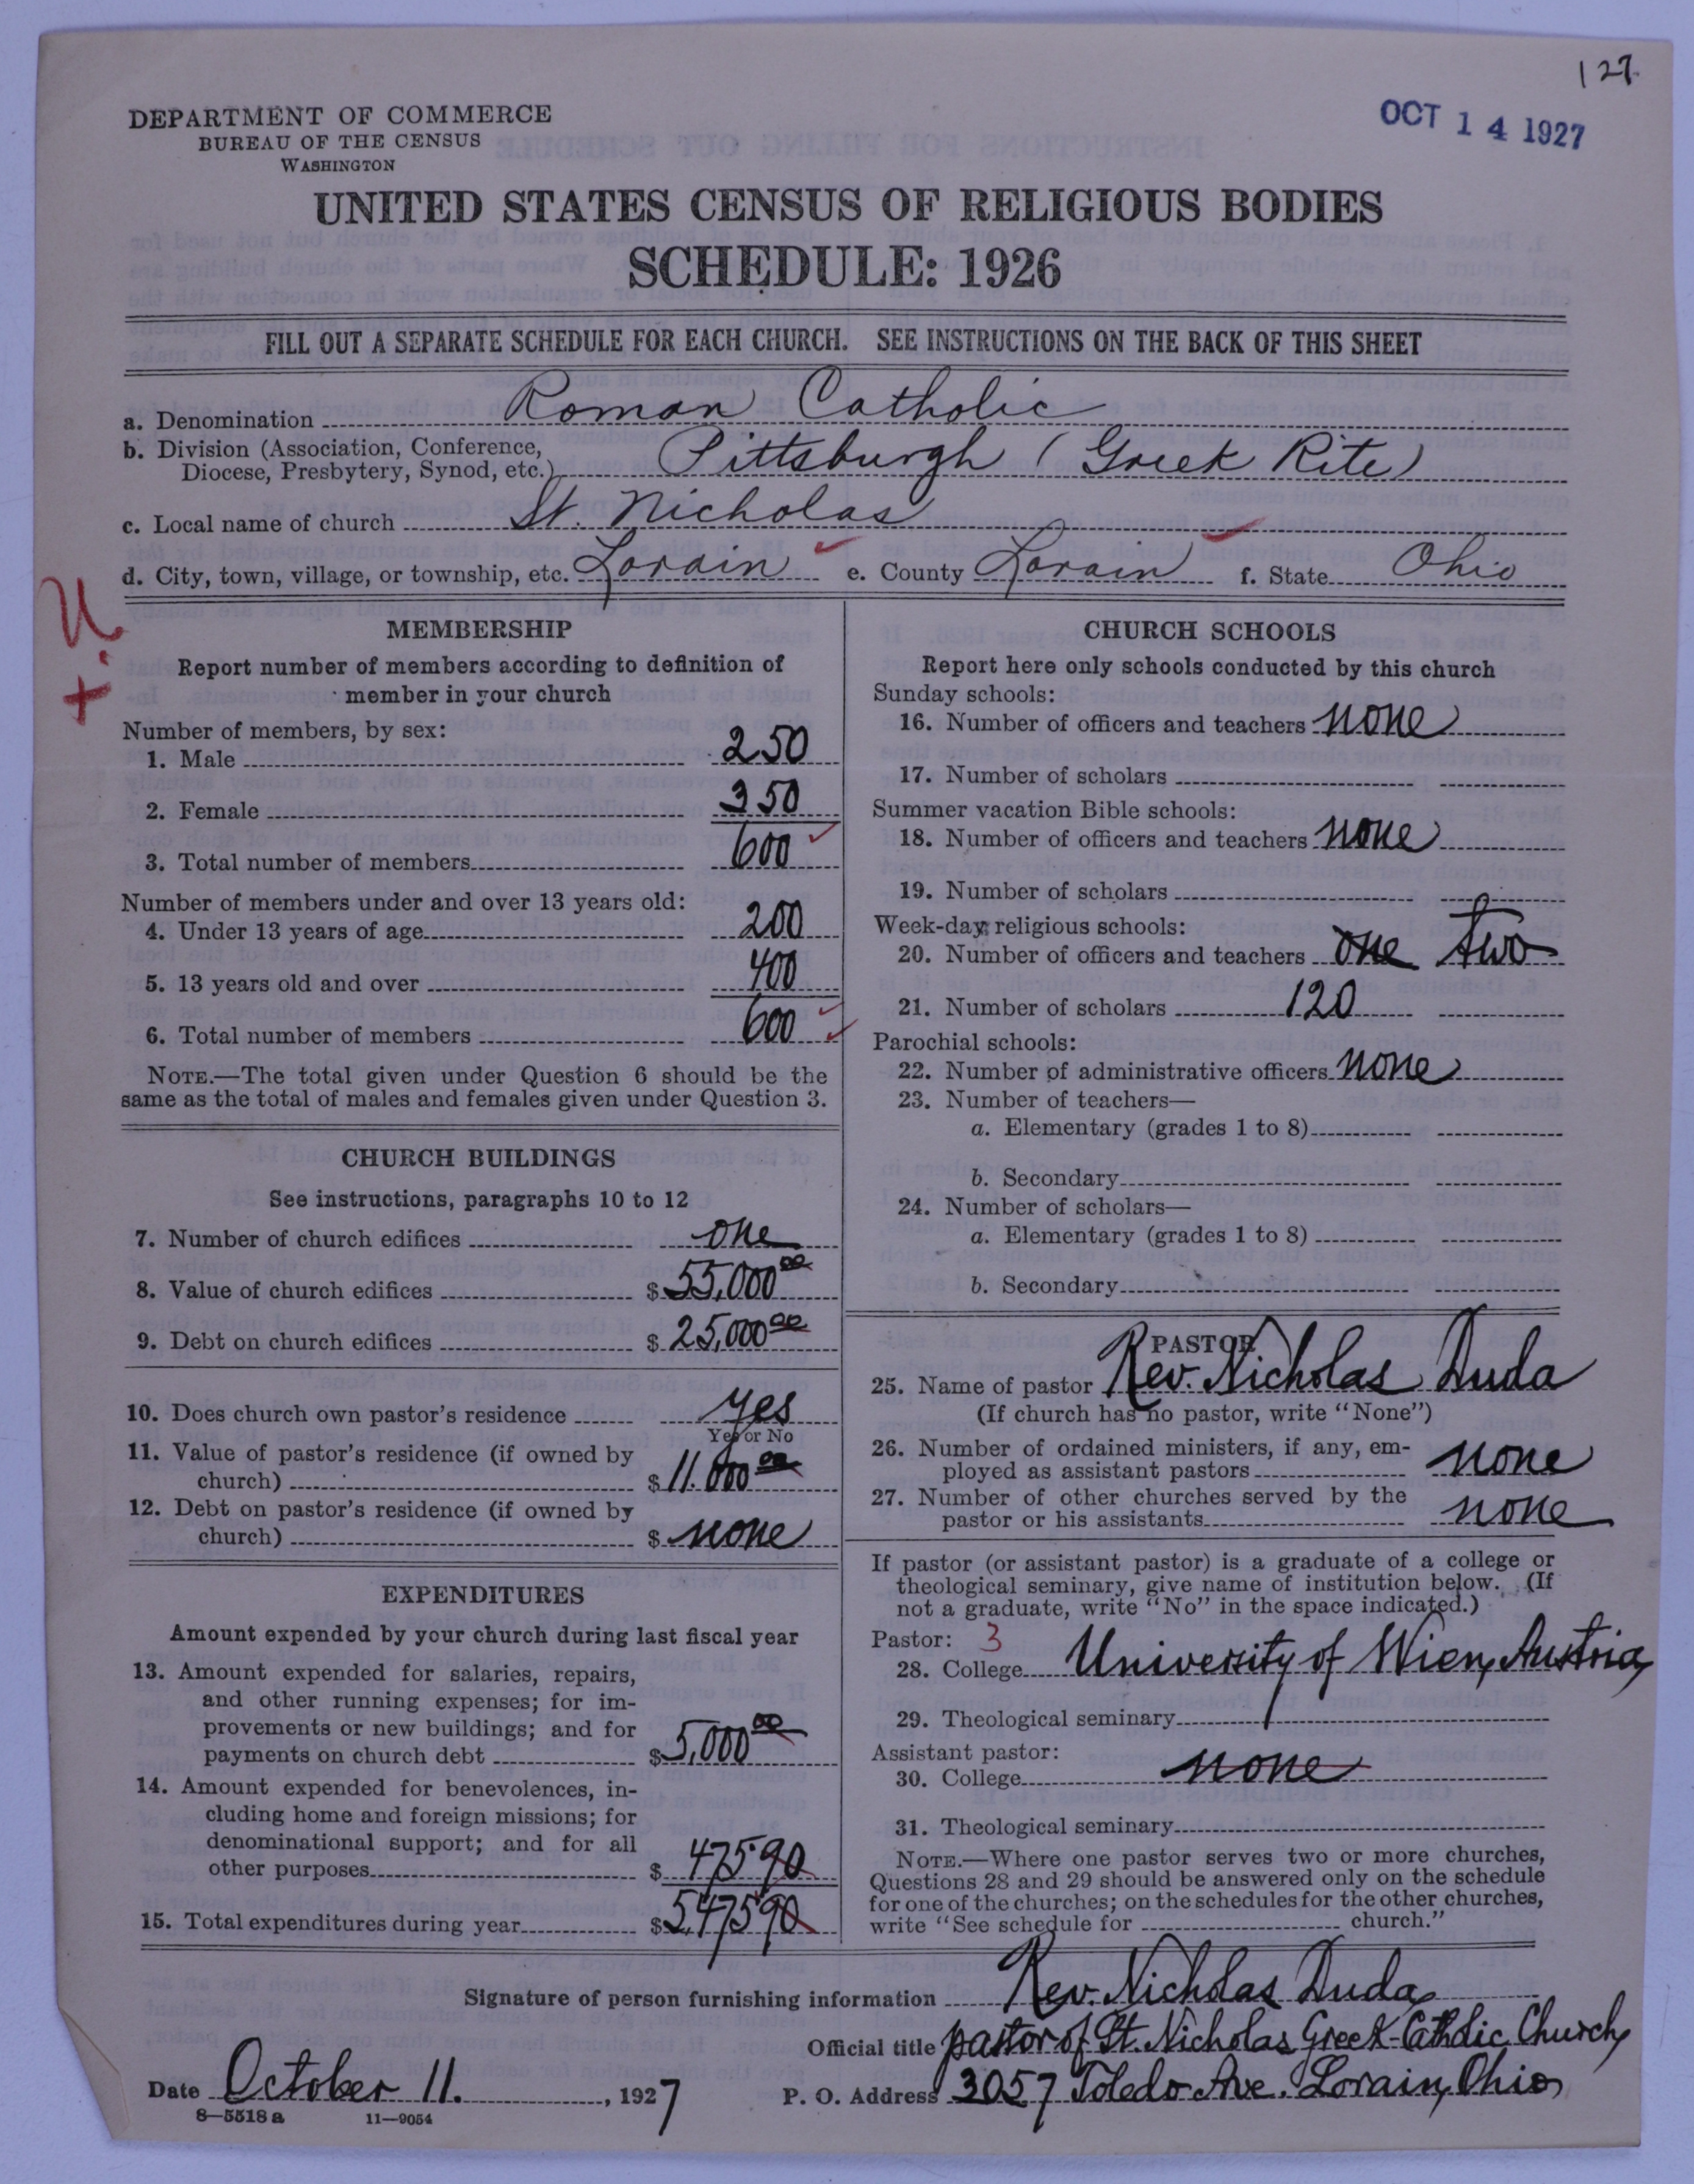 127.
OCT 14 1927
DEPARTMENT OF COMMERCE
BUREAU OF THE CENSUS
WASHINGTON
UNITED STATES CENSUS OF RELIGIOUS BODIES
SCHEDULE: 1926
FILL OUT A SEPARATE SCHEDULE FOR EACH CHURCH. SEE INSTRUCTIONS ON THE BACK OF THIS SHEET
a. Denomination Roman Catholic
b. Division (Association, Conference, Diocese, Presbytery, Synod, etc.) Pittsburgh (Greek Rite)
c. Local name of church St. Nicholas
d. City, town, village, or township, etc. Lorain e. County Lorain f. State Ohio
MEMBERSHIP
Report number of members according to definition of
member in your church
Number of members, by sex:
1. Male 250
2. Female 350
3. Total number of members 600
Number of members under and over 13 years old:
4. Under 13 years of age 200
5. 13 years old and over 400
6. Total number of members 600
NOTE.—The total given under Question 6 should be the
same as the total of males and females given under Question 3.
CHURCH BUILDINGS
See instructions, paragraphs 10 to 12
7. Number of church edifices one
8. Value of church edifices $55,000 00
9. Debt on church edifices $25,000 00
10. Does church own pastor's residence yes
Yes or No
11. Value of pastor's residence (if owned by
church) $11.000 00
12. Debt on pastor's residence (if owned by
church) $ none
EXPENDITURES
Amount expended by your church during last fiscal year
13. Amount expended for salaries, repairs,
and other running expenses; for im-
provements or new buildings; and for
payments on church debt $5,000 00
14. Amount expended for benevolences, in-
cluding home and foreign missions; for
denominational support; and for all
other purposes $ 475 90
15. Total expenditures during year $5,475 90
CHURCH SCHOOLS
Report here only schools conducted by this church
Sunday schools:
16. Number of officers and teachers none
17. Number of scholars
Summer vacation Bible schools:
18. Number of officers and teachers none
19. Number of scholars
Week-day religious schools:
20. Number of officers and teachers one two
21. Number of scholars 120
Parochial schools:
22. Number of administrative officers none
23. Number of teachers—
a. Elementary (grades 1 to 8)
b. Secondary
24. Number of scholars—
a. Elementary (grades 1 to 8)
b. Secondary
PASTOR
25. Name of pastor Rev. Nicholas Duda
(If church has no pastor, write "None")
26. Number of ordained ministers, if any, em-
ployed as assistant pastors none
27. Number of other churches served by the
pastor or his assistants none
If pastor (or assistant pastor) is a graduate of a college or
theological seminary, give name of institution below. (If
not a graduate, write "No" in the space indicated.)
Pastor: 3
28. College University of Wien, Austria,
29. Theological seminary
Assistant pastor:
30. College none
31. Theological seminary
NOTE.—Where one pastor serves two or more churches,
Questions 28 and 29 should be answered only on the schedule
for one of the churches; on the schedules for the other churches,
write "See schedule for church."
Signature of person furnishing information Rev. Nicholas Duda,
Official title pastor of St. Nicholas Greek-Catholic Church,
Date October 11., 1927 P. O. Address 3057 Toledo Ave. Lorain, Ohio,
8—5518 a 11—9054